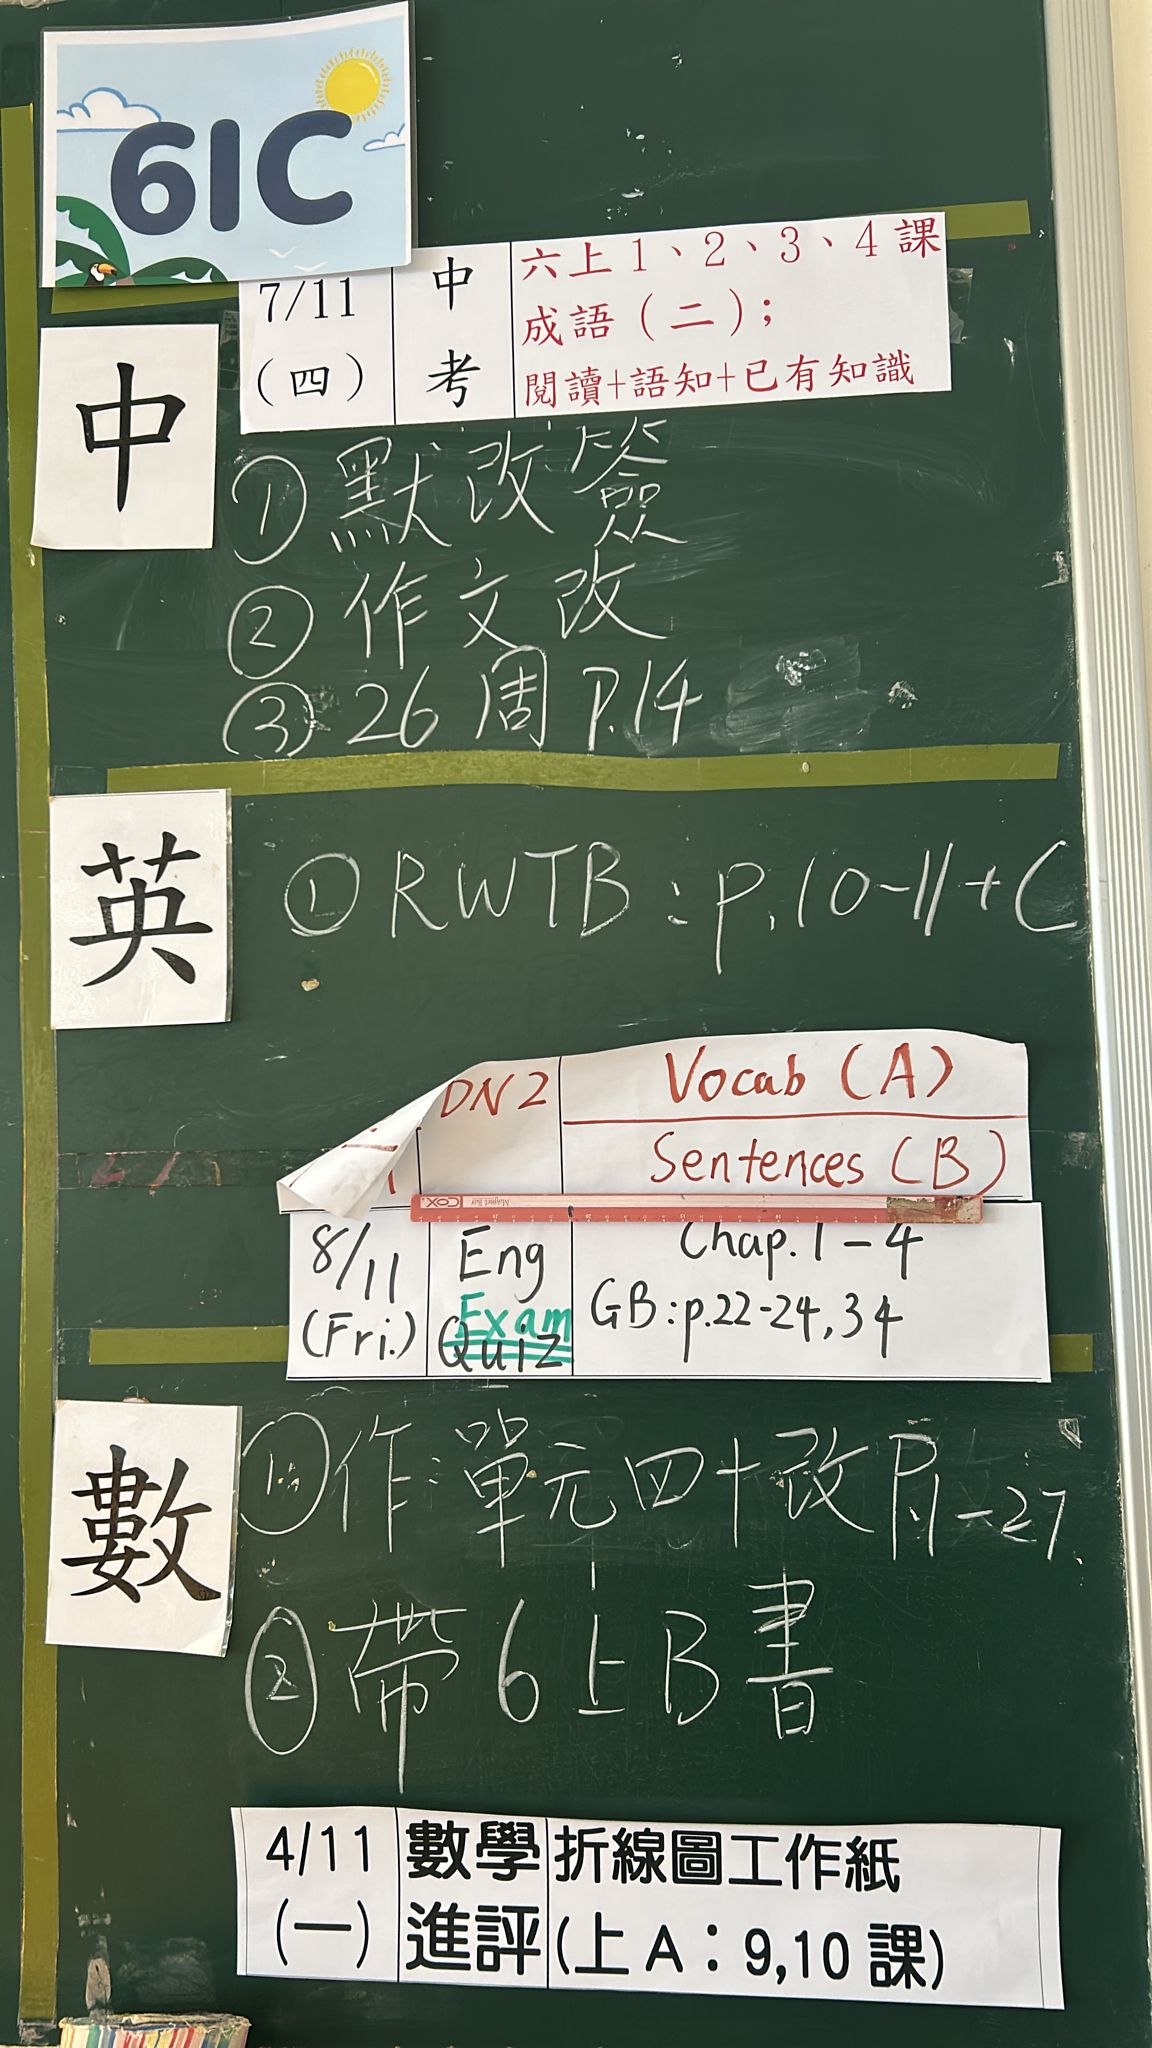 6IC
7/11
(四)
中
考
六上1、2、3、4課
成語(二);
閱讀+語知+已有知識
中
① 默改簽
② 作文改
③ 26周 P.14
英
① RWTB : p.10-11+C
DN2
Vocab (A)
Sentences (B)
COX
8/11
(Fri.)
Eng
Exam
Quiz
Chap. 1-4
GB: p.22-24, 34
數
① 作:單元四+改 P.1-27
② 帶6上B書
4/11
(一)
數學
進評
折線圖工作紙
(上A:9,10課)